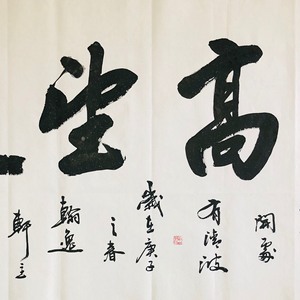 高望
處
有清波
歲在庚子
之春
翰逸
軒主